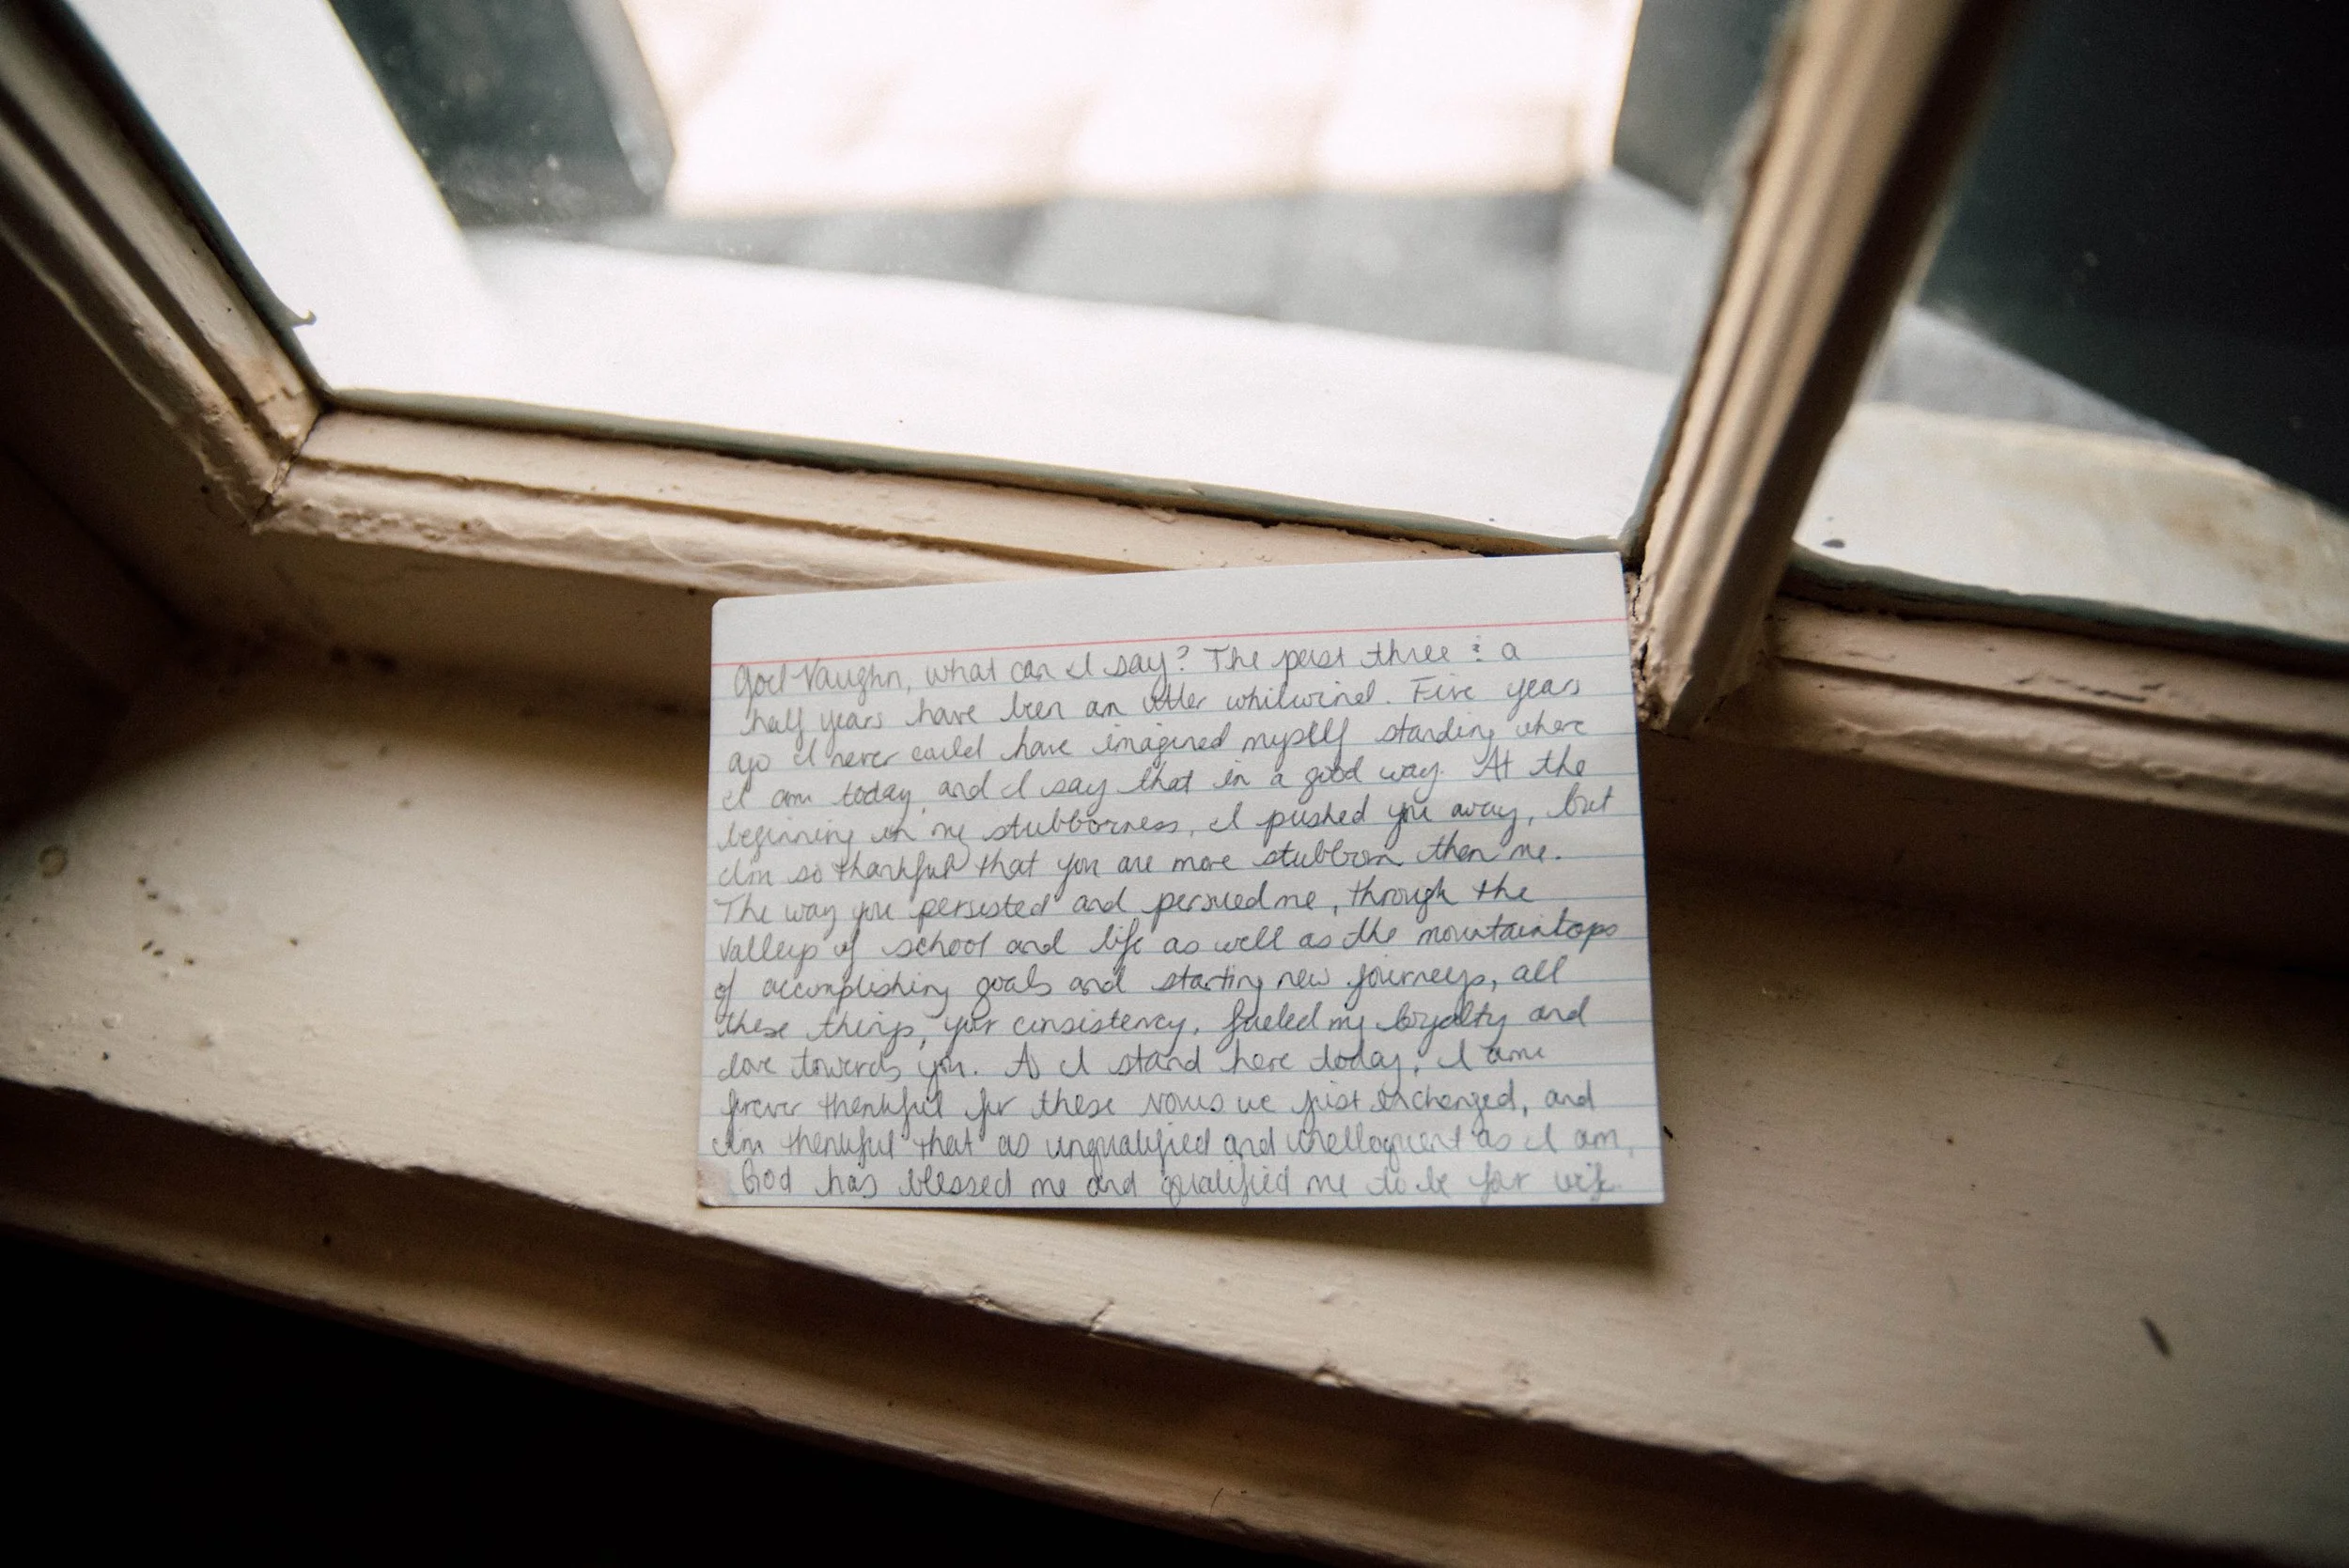 Joel Vaughn, what can I say? The past three & a
half years have been an utter whilwind. Five years
ago I never could have imagined myself standing where
I am today, and I say that in a good way. At the
beginning in my stubborness, I pushed you away, but
I'm so thankful that you are more stubborn then me.
The way you persisted and persued me, through the
valleys of school and life as well as the mountaintops
of accomplishing goals and starting new journeys, all
these things, your consistency, fueled my loyalty and
love towards you. As I stand here today, I am
forever thankful for these vows we just exchanged, and
I'm thankful that as unqualified and unelloquent as I am,
God has blessed me and qualified me to be your wife.